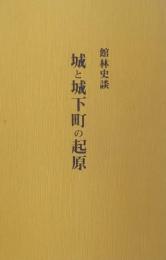 館林史談
城と城下町の起原